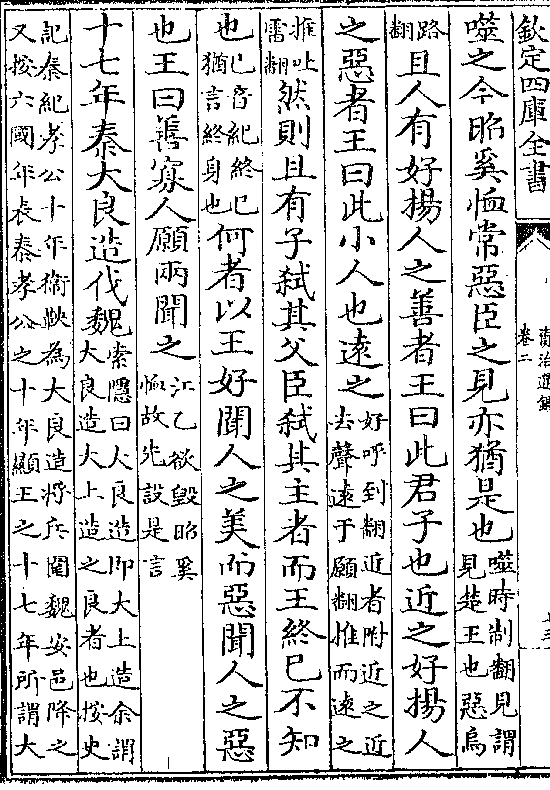 欽定四庫全書
資治通鑑
卷二
噬之今昭奚恤常惡臣之見亦猶是也噬時制翻見謂見楚王也惡烏
路翻且人有好揚人之善者王曰此君子也近之好揚人
之惡者王曰此小人也遠之好呼到翻近者附近之近去聲遠于願翻推而遠之
推吐雷翻然則且有子弑其父臣弑其主者而王終已不知
也已音紀終已猶言終身也何者以王好聞人之美而惡聞人之惡
也王曰善寡人願兩聞之江乙欲毀昭奚恤故先設是言
十七年秦大良造伐魏索隱曰大良造即大上造余謂大良造大上造之良者也按史
記秦紀孝公十年衛鞅為大良造將兵圍魏安邑降之又按六國年表秦孝公之十年顯王之十七年所謂大